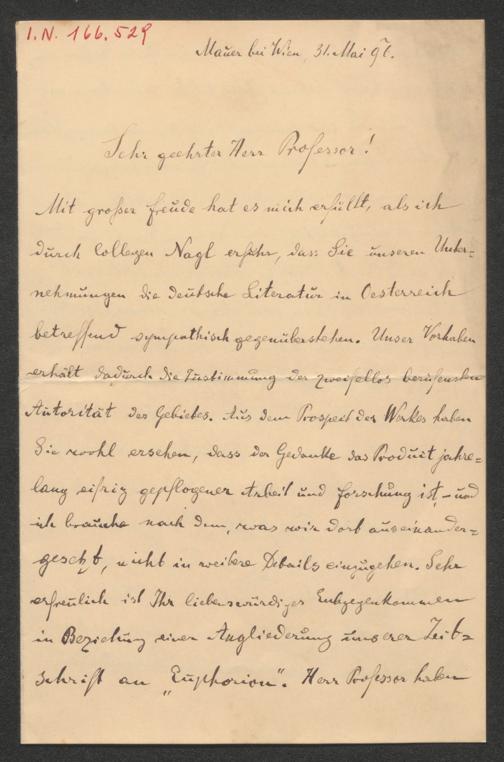 I.N. 166.529
Mauer bei Wien, 31. Mai 97.
Sehr geehrter Herr Professor!
Mit großer Freude hat es mich erfüllt, als ich
durch Collegen Nagl erfuhr, dass Sie unseren Unter=
nehmungen die deutsche Literatur in Oesterreich
betreffend sympathisch gegenüberstehen. Unser Vorhaben
erhält dadurch die Zustimmung der zweifellos berufensten
Autorität des Gebietes. Aus dem Prospect des Werkes haben
Sie wohl ersehen, dass der Gedanke das Product jahre=
lang eifrig gepflogener Arbeit und Forschung ist, – und
ich brauche nach dem, was wir dort auseinander=
gesetzt, nicht in weitere Details einzugehen. Sehr
erfreulich ist Ihr liebenswürdiges Entgegenkommen
in Beziehung einer Angliederung unserer Zeit=
schrift an „Euphorion". Herr Professor haben